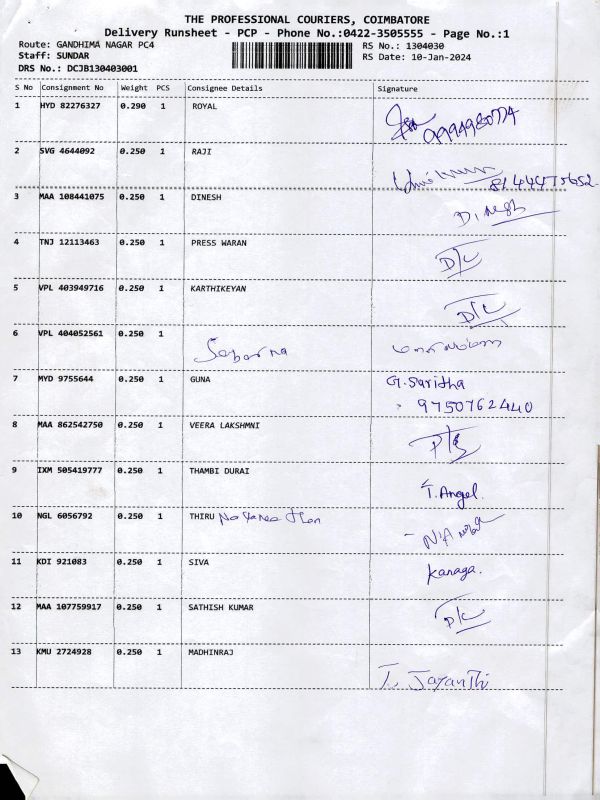 THE PROFESSIONAL COURIERS, COIMBATORE
Delivery Runsheet - PCP - Phone No.:0422-3505555 - Page No.:1
Route: GANDHIMA NAGAR PC4
Staff: SUNDAR
DRS No.: DCJB130403001
RS No.: 1304030
RS Date: 10-Jan-2024
S No Consignment No Weight PCS Consignee Details Signature
1 HYD 82276327 0.290 1 ROYAL
2 SVG 4644092 0.250 1 RAJI
3 MAA 108441075 0.250 1 DINESH Dinesh
4 TNJ 12113463 0.250 1 PRESS WARAN D/C
5 VPL 403949716 0.250 1 KARTHIKEYAN D/C
6 VPL 404052561 0.250 1
7 MYD 9755644 0.250 1 GUNA G. Saritha
9750762440
8 MAA 862542750 0.250 1 VEERA LAKSHMNI
9 IXM 505419777 0.250 1 THAMBI DURAI T. Angel.
10 NGL 6056792 0.250 1 THIRU
11 KDI 921083 0.250 1 SIVA Kanaga.
12 MAA 107759917 0.250 1 SATHISH KUMAR D/C
13 KMU 2724928 0.250 1 MADHINRAJ T. Jayanthi